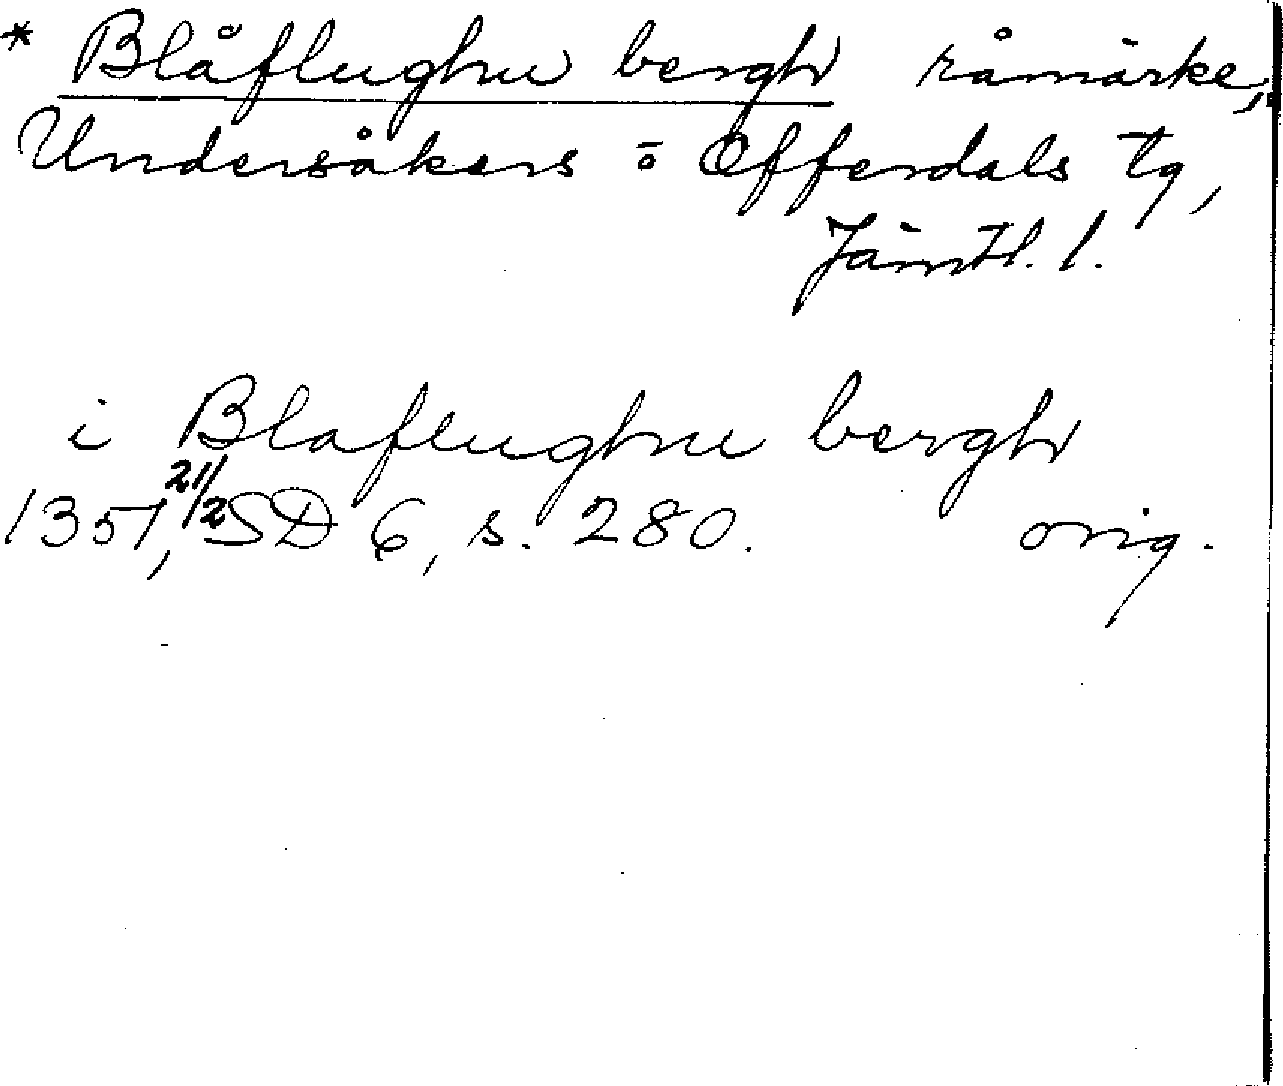 * Blåflughu bergh råmärke,
Undersåkers o Offerdals tg,
Jämtl. l.
i Blaflughu bergh
1351, 21/2 SD 6, s. 280. orig.